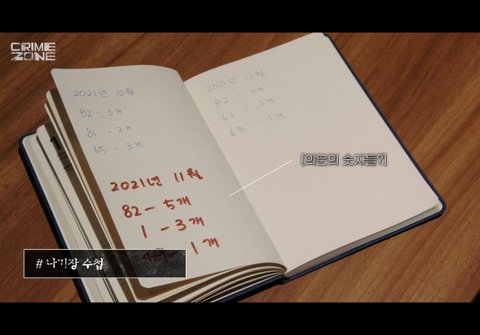 CRIME
ZONE
2021년 10월
82 - 3개
81 - 2개
65 - 3개
2021년 11월
82 - 5개
1 - 3개
49 - 1개
2021년 12월
82 - 4개
61 - 3개
63 - 1개
[의문의 숫자들?]
# 나기장 수첩